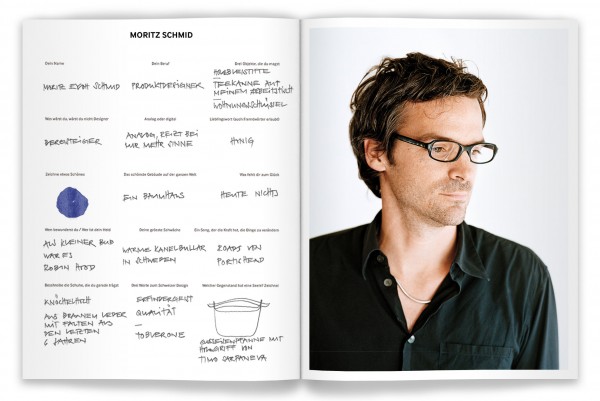 MORITZ SCHMID
Dein Name
MORITZ SCHMID
Dein Beruf
PRODUKTDESIGNER
Drei Objekte, die du magst
TEEKANNE AUF
MEINEM ARBEITSTISCH
WOHNUNGSSCHLÜSSEL
Was wärst du, wärst du nicht Designer
BERGSTEIGER
Analog oder digital
ANALOG, REIZT BEI
MIR MEHR SINNE
Lieblingswort (auch Fremdwörter erlaubt)
Zeichne etwas Schönes
Das schönste Gebäude auf der ganzen Welt
EIN BAUMHAUS
Was fehlt dir zum Glück
HEUTE NICHTS
Wen bewunderst du / Wer ist dein Held
ALS KLEINER BUB
WAR ES
ROBIN HOOD
Deine grösste Schwäche
WARME KANELBULLAR
IN SCHWEDEN
Ein Song, der die Kraft hat, die Dinge zu verändern
ROADS VON
PORTISHEAD
Beschreibe die Schuhe, die du gerade trägst
KNÖCHELHOCH
AUS BRAUNEM LEDER
MIT FALTEN AUS
DEN LETZTEN
6 JAHREN
Drei Worte zum Schweizer Design
ERFINDERGEIST
QUALITÄT
TOBLERONE
Welcher Gegenstand hat eine Seele? Zeichne!
GUSSEISENPFANNE MIT
HOLZGRIFF VON
TIMO SARPANEVA